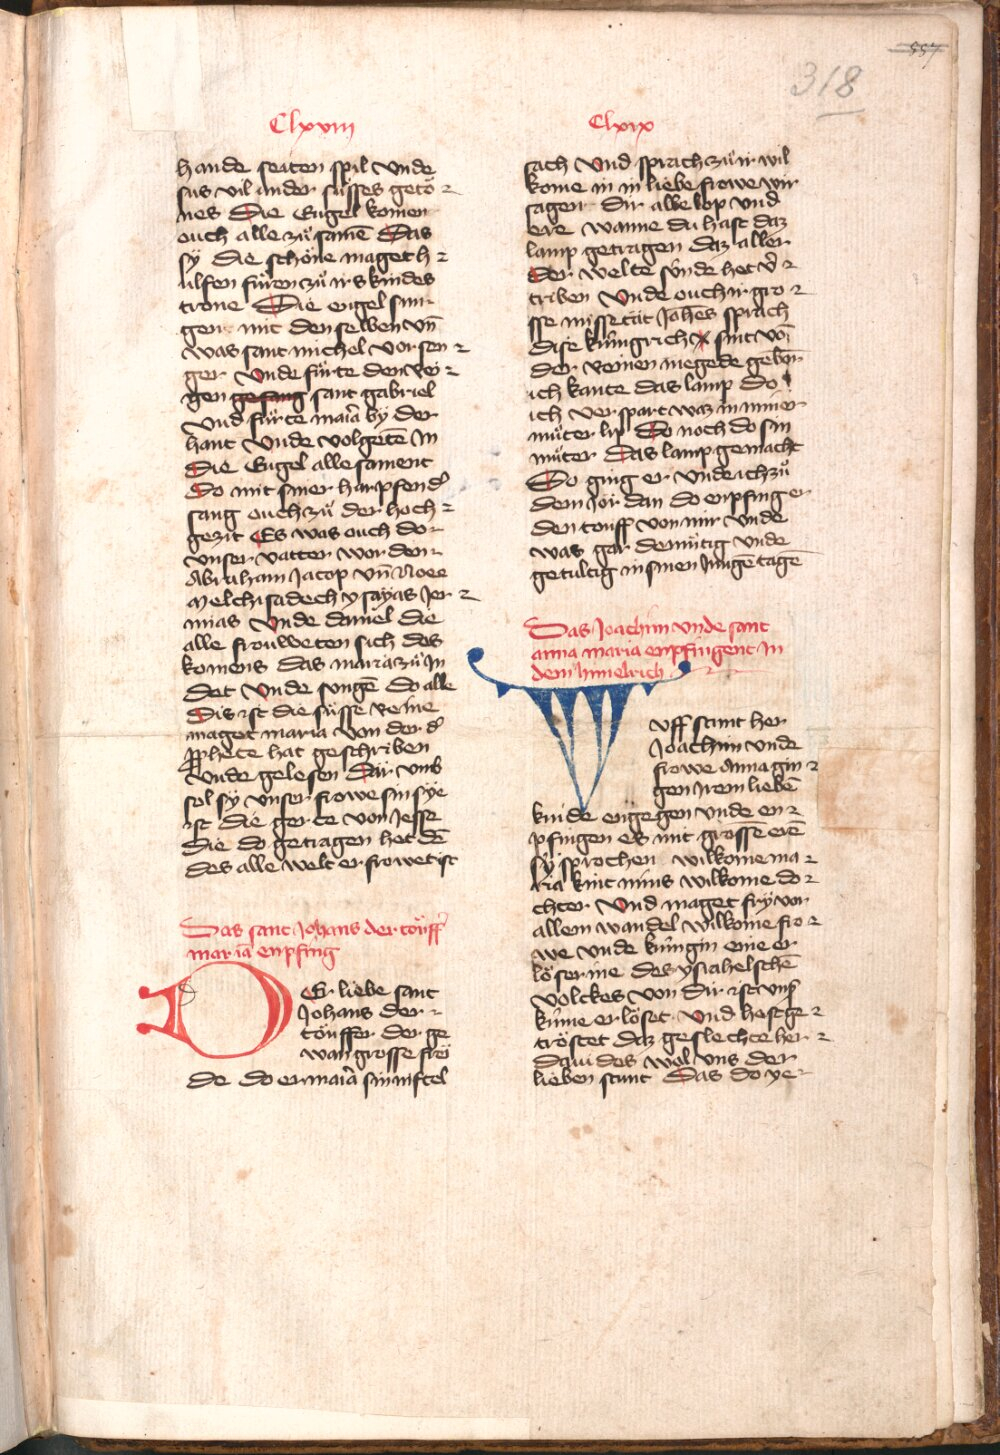 557
318
Clxviij
hande seiten spil Vnde
sus vil ander süsses getö
nes Die Engel komen
ouch alle zů samē Das
sy die schöne maget h
ulfen fůren zů irs kindes
trone Die engel sun
gen mit den selben vn̄
was sant michel vor sen
ger Vnde fůrte den rei
gen gesang sant gabriel
Vnd fůrte maīa by der
hant Vnde volgetē In
Die Engel alle sament
Do mit siner harpfen d
sang ouch zů der hoch
gezit Es was ouch do
vnser vatter wor den
Abraham Jacop vn̄ Noee
Melchisadech ysayas Jer
mias Vnde daniel die
alle frouweten sich des
komens das maria zů In
det Vnde sungē do alle
Dis ist die süsse reine
maget maria von der d
pphete hat geschriben
Vnde gelesen Dar vmb
sol sy vnser frowe sin sye
ist die gerte von Jesse
die do getragen het dē
des alle welt erfrowet ist
Das sant Johans der töuff
mariā enpfing
DEr liebe sant
Johans der
töuffer der ge
wan grosse frö
de do er maīa sin niftel
Clxix
sach Vnd sprach zů ir wil
kome in in liebe frowe wir
sagen dir alle lop vnd
ere wanne du hast daz
lamp getragen daz aller
der welte sünde het v
triben Vnde ouch ir gro
sse missetät Johēs sprach
dise künigrich x sint vō
der reinen megede geborn
ich kante das lamp do
ich verspart waz in miner
můter lip Do noch do sin
můter Das lamp gemacht
Do ging er Vnde ich zů
dem Jordan do enpfing er
den touff von mir Vnde
was gar demůtig Vnde
getultig in sinen Jungē tagē
Das Joachim vnde sant
anna maria enpfingent In
dem himelrich
Vff stunt her
Joachim vnde
frowe Anna gin
gen Irem liebē
kinde engegen vnde en
pfingen es mit grossē erē
sy sprochen wilkome ma
ria kint mins wilkome do
chter Vnd maget fry vor
allem wandel wilkome fro
we vnde künigin eine er
löserine des ysrahelschē
volckes von dir ist vns
kume erlöset Vnd hest ge
tröstet daz geslechte her
dauides wol vns der
lieben stunt Das do ye